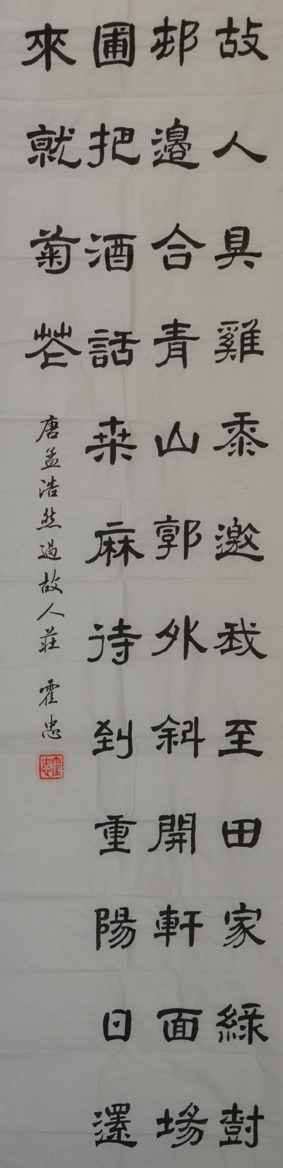 故人具雞黍邀我至田家綠樹
邨邊合青山郭外斜開軒面場
圃把酒話桑麻待到重陽日還
來就菊花
唐孟浩然過故人莊 霍忠
霍忠